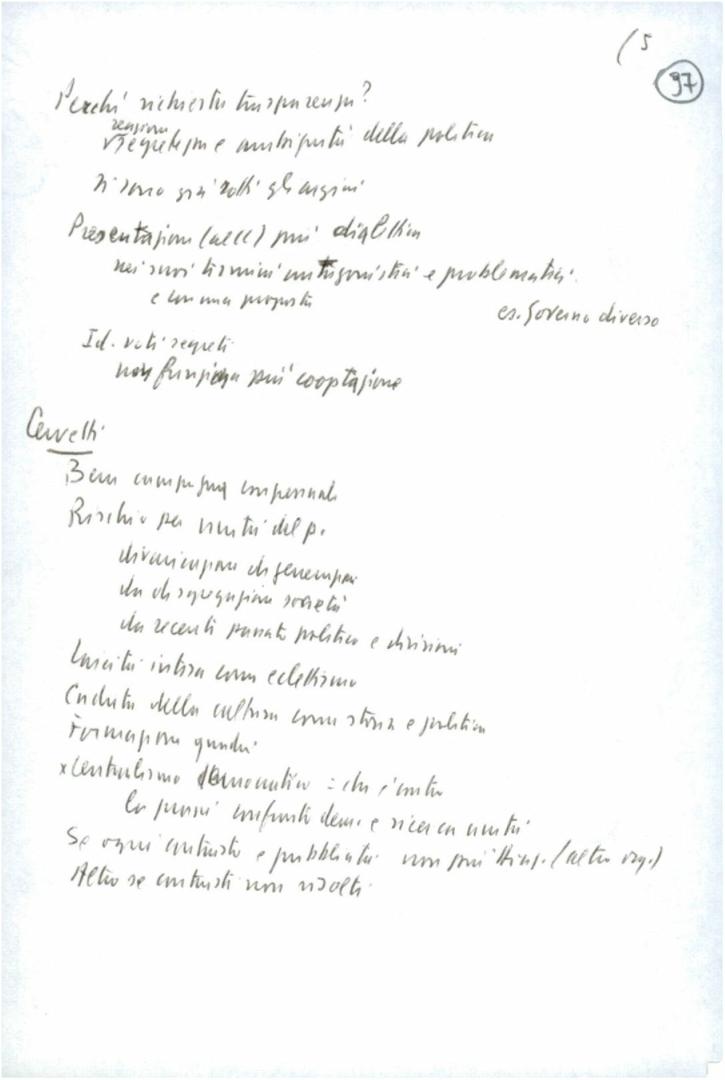 (5
97
Perché richiesta trasparenza?
reazione
√ segretezza e ambiguità della politica
Si sono già rotti gli argini
Presentazione più dialettica
nei suoi termini antagonistici e problematici
e con una proposta
es. Governo diverso
Id. voti segreti
non funziona più cooptazione
Cervetti
Bene campagna
Rischio per unità del p.
divaricazione di generazioni
da disgregazione società
da recenti politica e divisioni
Laicità intesa come eclettismo
Caduta della cultura come storia e politica
Formazione quadri
x Centralismo democratico = che
confronti dem. e ricerca unità
Se ogni contrasto è pubblicità non può (altro org.)
Altro se contrasti non risolti